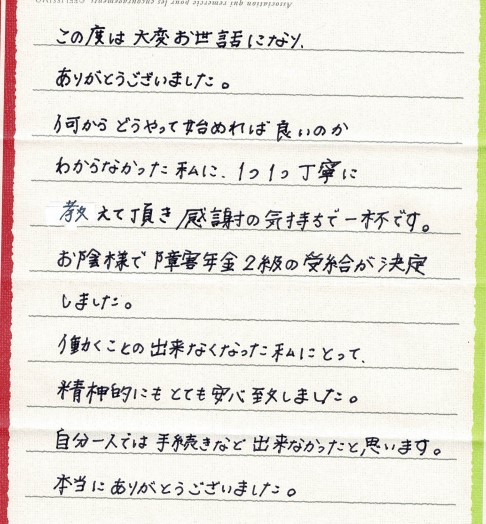 Association qui remercie pour les encouragements.
この度は大変お世話になり、
ありがとうございました。
何からどうやって始めれば良いのか
わからなかった私に、1つ1つ丁寧に
教えて頂き感謝の気持ちで一杯です。
お陰様で障害年金2級の受給が決定
しました。
働くことの出来なくなった私にとって、
精神的にもとても安心致しました。
自分一人では手続きなど出来なかったと思います。
本当にありがとうございました。